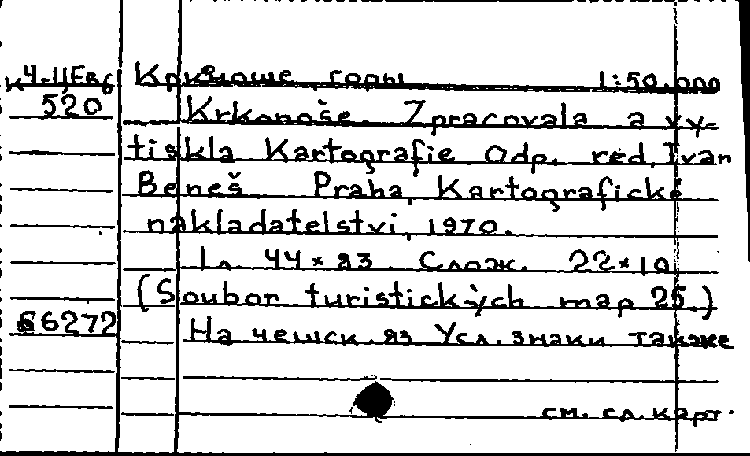 К4-ЦЕв6 Крконоше, горы 1:50.000
520 Krkonoše. Zpracovala a vy-
tiskla Kartografie Odp. red. Ivan
Beneš Praha, Kartografické
nakladatelstvi, 1970.
1 л. 44×83 Слож. 22×10
(Soubor turistických map 25.)
66272 На чешск. яз Усл. знаки также
см. сл. карт.